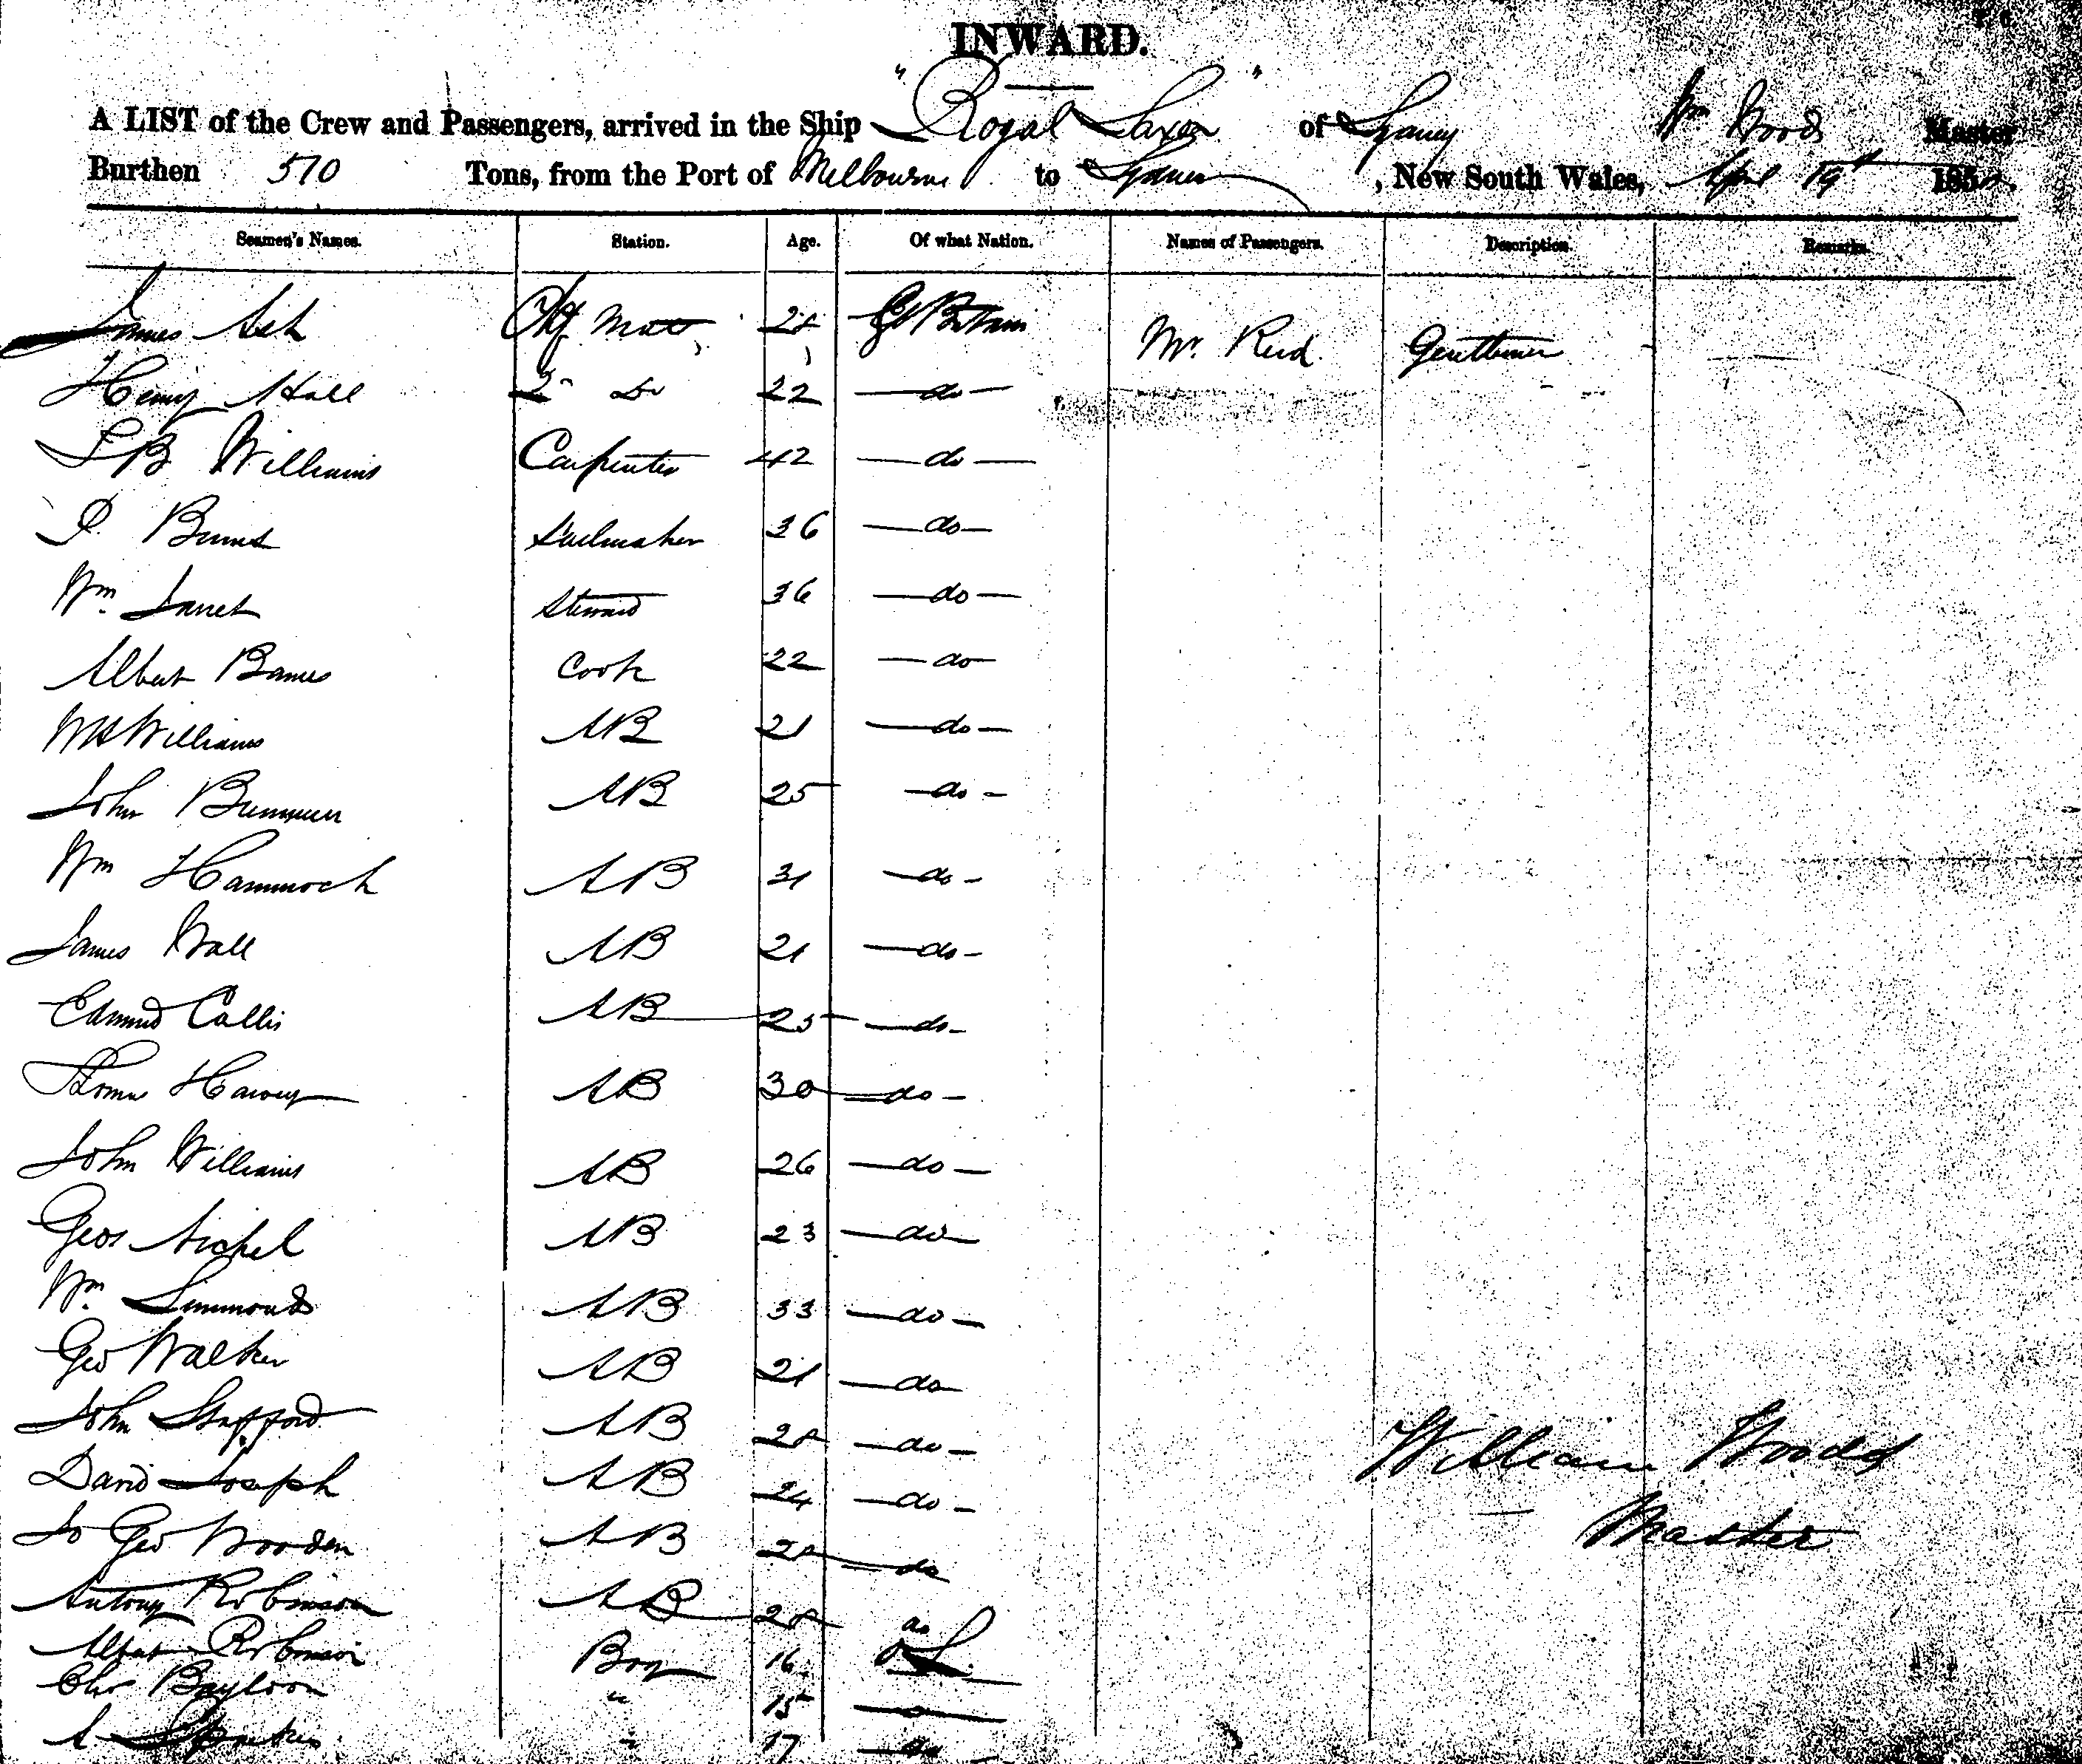 INWARD.
A LIST of the Crew and Passengers, arrived in the Ship "Royal Saxon" of Sydney Wm Woods Master
Burthen 570 Tons, from the Port of Melbourne to Sydney, New South Wales, April 19th 185
Seamen's Names. Station. Age. Of what Nation. Names of Passengers. Description. Remarks.
James Ash Chf Mate 28 Gt Britain Mr. Reid Gentleman
Henry Hall 2nd Do 22 do
Williams Carpenter 42 do
Burns Sailmaker 36 do
Wm. Steward 36 do
Albert Barnes Cook 22 do
WH Williams AB 21 do
John AB 25 do
Wm Hammock AB 31 do
James Wall AB 21 do
Edmund Callis AB 25 do
Thomas Harvey AB 30 do
John Williams AB 26 do
Geo AB 23 do
Wm. Simmonds AB 33 do
Geo Walker AB 21 do
John Stafford AB 28 do
David Joseph AB 24 do
William Woods
Jo Geo Wooden AB 28 do
Master
Antony Robinson AB 28 do
Albert Robinson Boy 16
Chs Bayloon " 15
A " 17 do